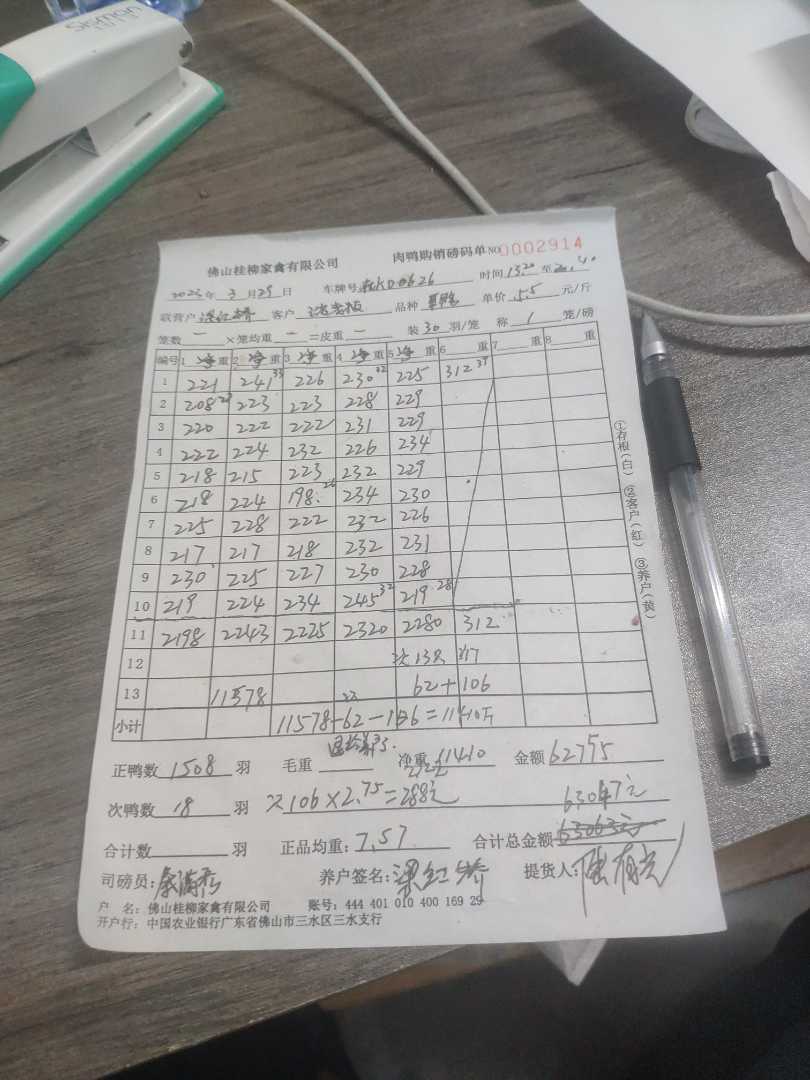 佛山桂柳家禽有限公司 肉鸭购销磅码单 NO 0002914
2023年 3月29日 车牌号 0626 时间 13.20 至 20.40
联营户 客户 品种 单价 5.5 元/斤
笼数 一 ×笼均重 一 =皮重 一 装 30 羽/笼 称 1 笼/磅
编号 1 净重 2 净重 3 净重 4 净重 5 净重 6 重 7 重 8 重
1 221 241 33 226 230 32 225 312
2 208 223 223 228 229
3 220 222 222 231 229
4 222 224 232 226 234
5 218 215 223 232 229
6 218 224 198 234 230
7 225 228 222 232 226
8 217 217 218 232 231
9 230 225 227 230 228
10 219 224 234 245 32 219 28
11 2198 2243 2225 2320 2280 312
12
13 11578 62+106
小计 11578-62-106=11410斤
正鸭数 1508 羽 毛重 净重 11410 金额 62755
次鸭数 18 羽 106×2.75=288元 63047元
合计数 羽 正品均重: 7.57 合计总金额
司磅员: 养户签名: 提货人:
户 名: 佛山桂柳家禽有限公司 账号: 444 401 010 400 169 29
开户行: 中国农业银行广东省佛山市三水区三水支行
①存根(白) ②客户(红) ③养户(黄)